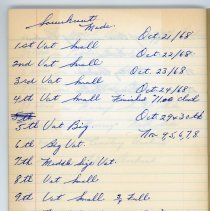 Sauerkraut
Made.
Oct. 21/68
1st Vat Small Oct. 22/68
2nd Vat Small Oct. 23/68
3rd Vat Small Oct 24/68
4th Vat Small Finished
Oct. 29
5th Vat Big. Nov 4,5,6,7,8
6th Big Vat.
7th Middle Size Vat.
8th Vat Small
9th Vat Small 3/4 Full